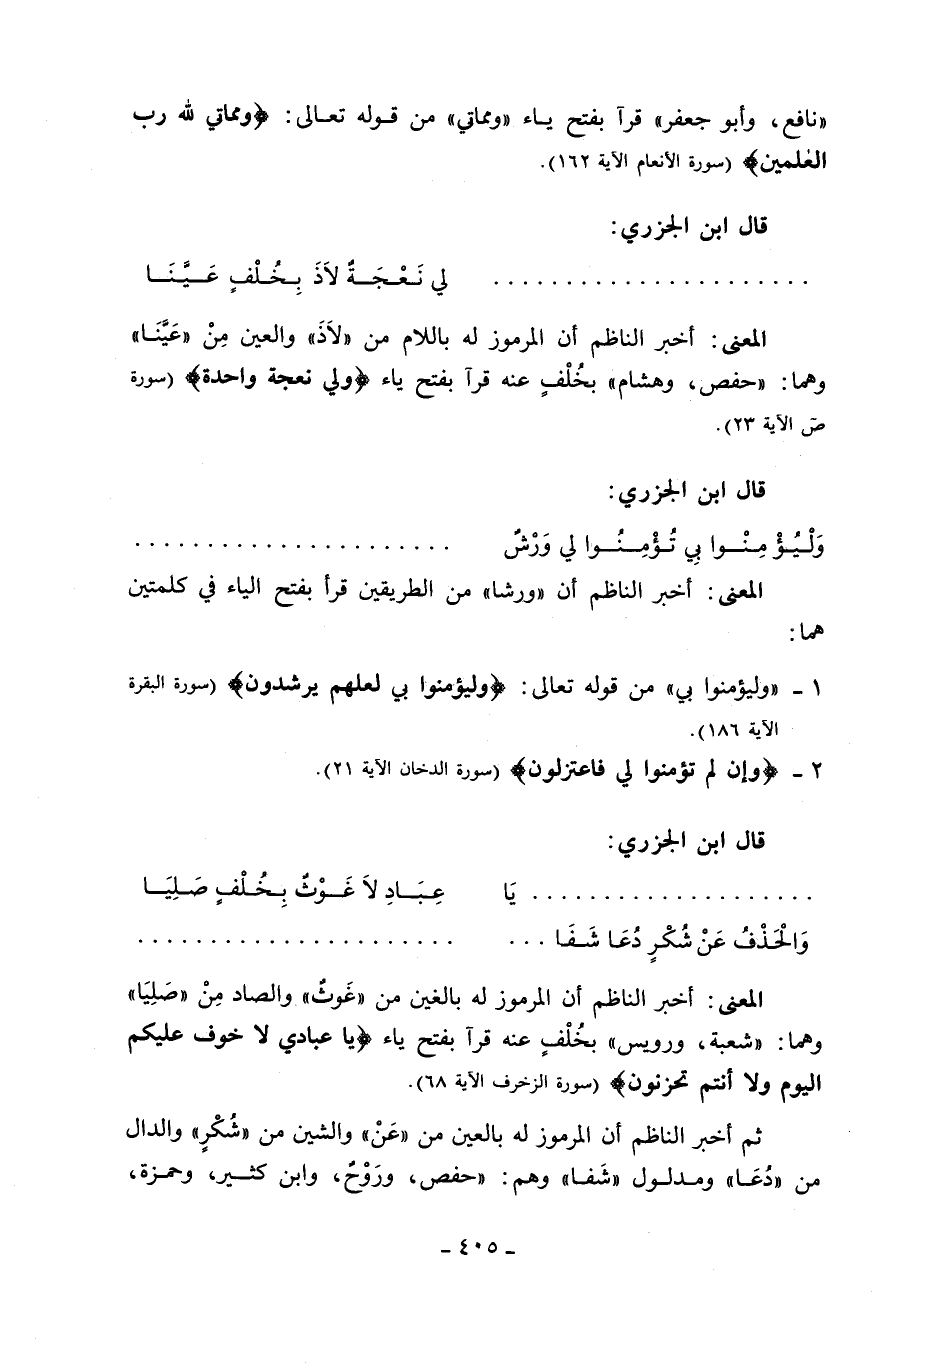 «نافع، وأبو جعفر» قرآ بفتح يـاء «ومماتي» من قـوله تعـالى: ﴿ومماتي لله رب
العٰلمين﴾ (سورة الأنعام الآية ١٦٢).
قال ابن الجزري:
..................... لي نَـعْـجَـةٌ لاَذَ بِـخُـلْـفٍ عَـيَّـنَـا
المعنى: أخبر الناظم أن المرموز له باللام من «لاَذَ» والعين مِنْ «عَيَّنَـا»
وهمـا: «حفص، وهشام» بخُلْفٍ عنه قرآ بفتح ياء ﴿ولي نعجة واحدة﴾ (سورة
صۤ الآية ٢٣).
قال ابن الجزري:
وَلْـيُـؤْمِـنْـوا بِي تُـؤْمِـنُـوا لي وَرْشٌ .....................
المعنى: أخبر الناظم أن «ورشا» من الطريقين قرأ بفتح الياء في كلمتين
هما:
١ - «وليؤمنوا بي» من قوله تعالى: ﴿وليؤمنوا بي لعلهم يرشدون﴾ (سورة البقرة
الآية ١٨٦).
٢ - ﴿وإن لم تؤمنوا لي فاعتزلون﴾ (سورة الدخان الآية ٢١).
قال ابن الجزري:
................... يَا عِـبَـادِ لاَ غَـوْثٌ بِـخُـلْـفٍ صَـلِيَـا
وَالْحَذْفُ عَنْ شُكْرٍ دُعَـا شَـفَـا ... .....................
المعنى: أخبر الناظم أن المرموز له بالغين من «غَوثٌ» والصاد مِنْ «صَلِيَا»
وهما: «شعبة، ورويس» بخُلْفٍ عنه قرآ بفتح ياء ﴿يا عبادي لا خوف عليكم
اليوم ولا أنتم تحزنون﴾ (سورة الزخرف الآية ٦٨).
ثم أخبر الناظم أن المرموز له بالعين من «عَنْ» والشين من «شُكْرٍ» والدال
من «دُعَـا» ومـدلـول «شَفا» وهم: «حفص، ورَوْحٌ، وابن كثـير، وحمـزة،
- ٤٠٥ -